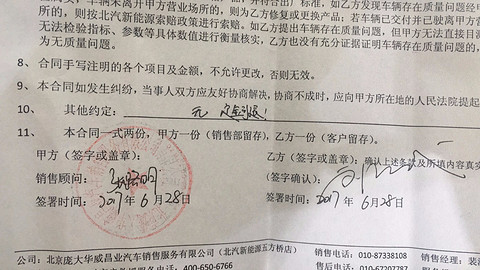 所，车辆未离开甲方营业场所的，则为乙方修复或更换产品；若车辆已交付并已驶离甲方营
的，则按北汽新能源索赔政策进行索赔。如乙方提出车辆存在质量问题，但甲方无法直接目
无法检验指标、参数等具体数值进行衡量核实，乙方也没有充分证据证明车辆存在质量问题的，
为无质量问题。
8、 合同手写注明的各个项目及金额，不允许更改，否则无效。
9、 本合同如发生纠纷，当事人双方应友好协商解决，协商不成时，应向甲方所在地的人民法院提起
10、 其他约定：
11、 本合同一式两份，甲方一份（销售部留存），乙方一份（客户留存）。
甲方（签字或盖章）： 乙方（签字或盖章）：确认上述条款及所填内容真实
销售顾问： （签字确认）：
签署时间：2017年 6月28日 签署时间：2017年 6月28日
公司：北京庞大华威昌业汽车销售服务有限公司（北汽新能源五方桥店） 销售电话：010-87338108 销售经理：
400-650-6766 售后电话：010-67207787